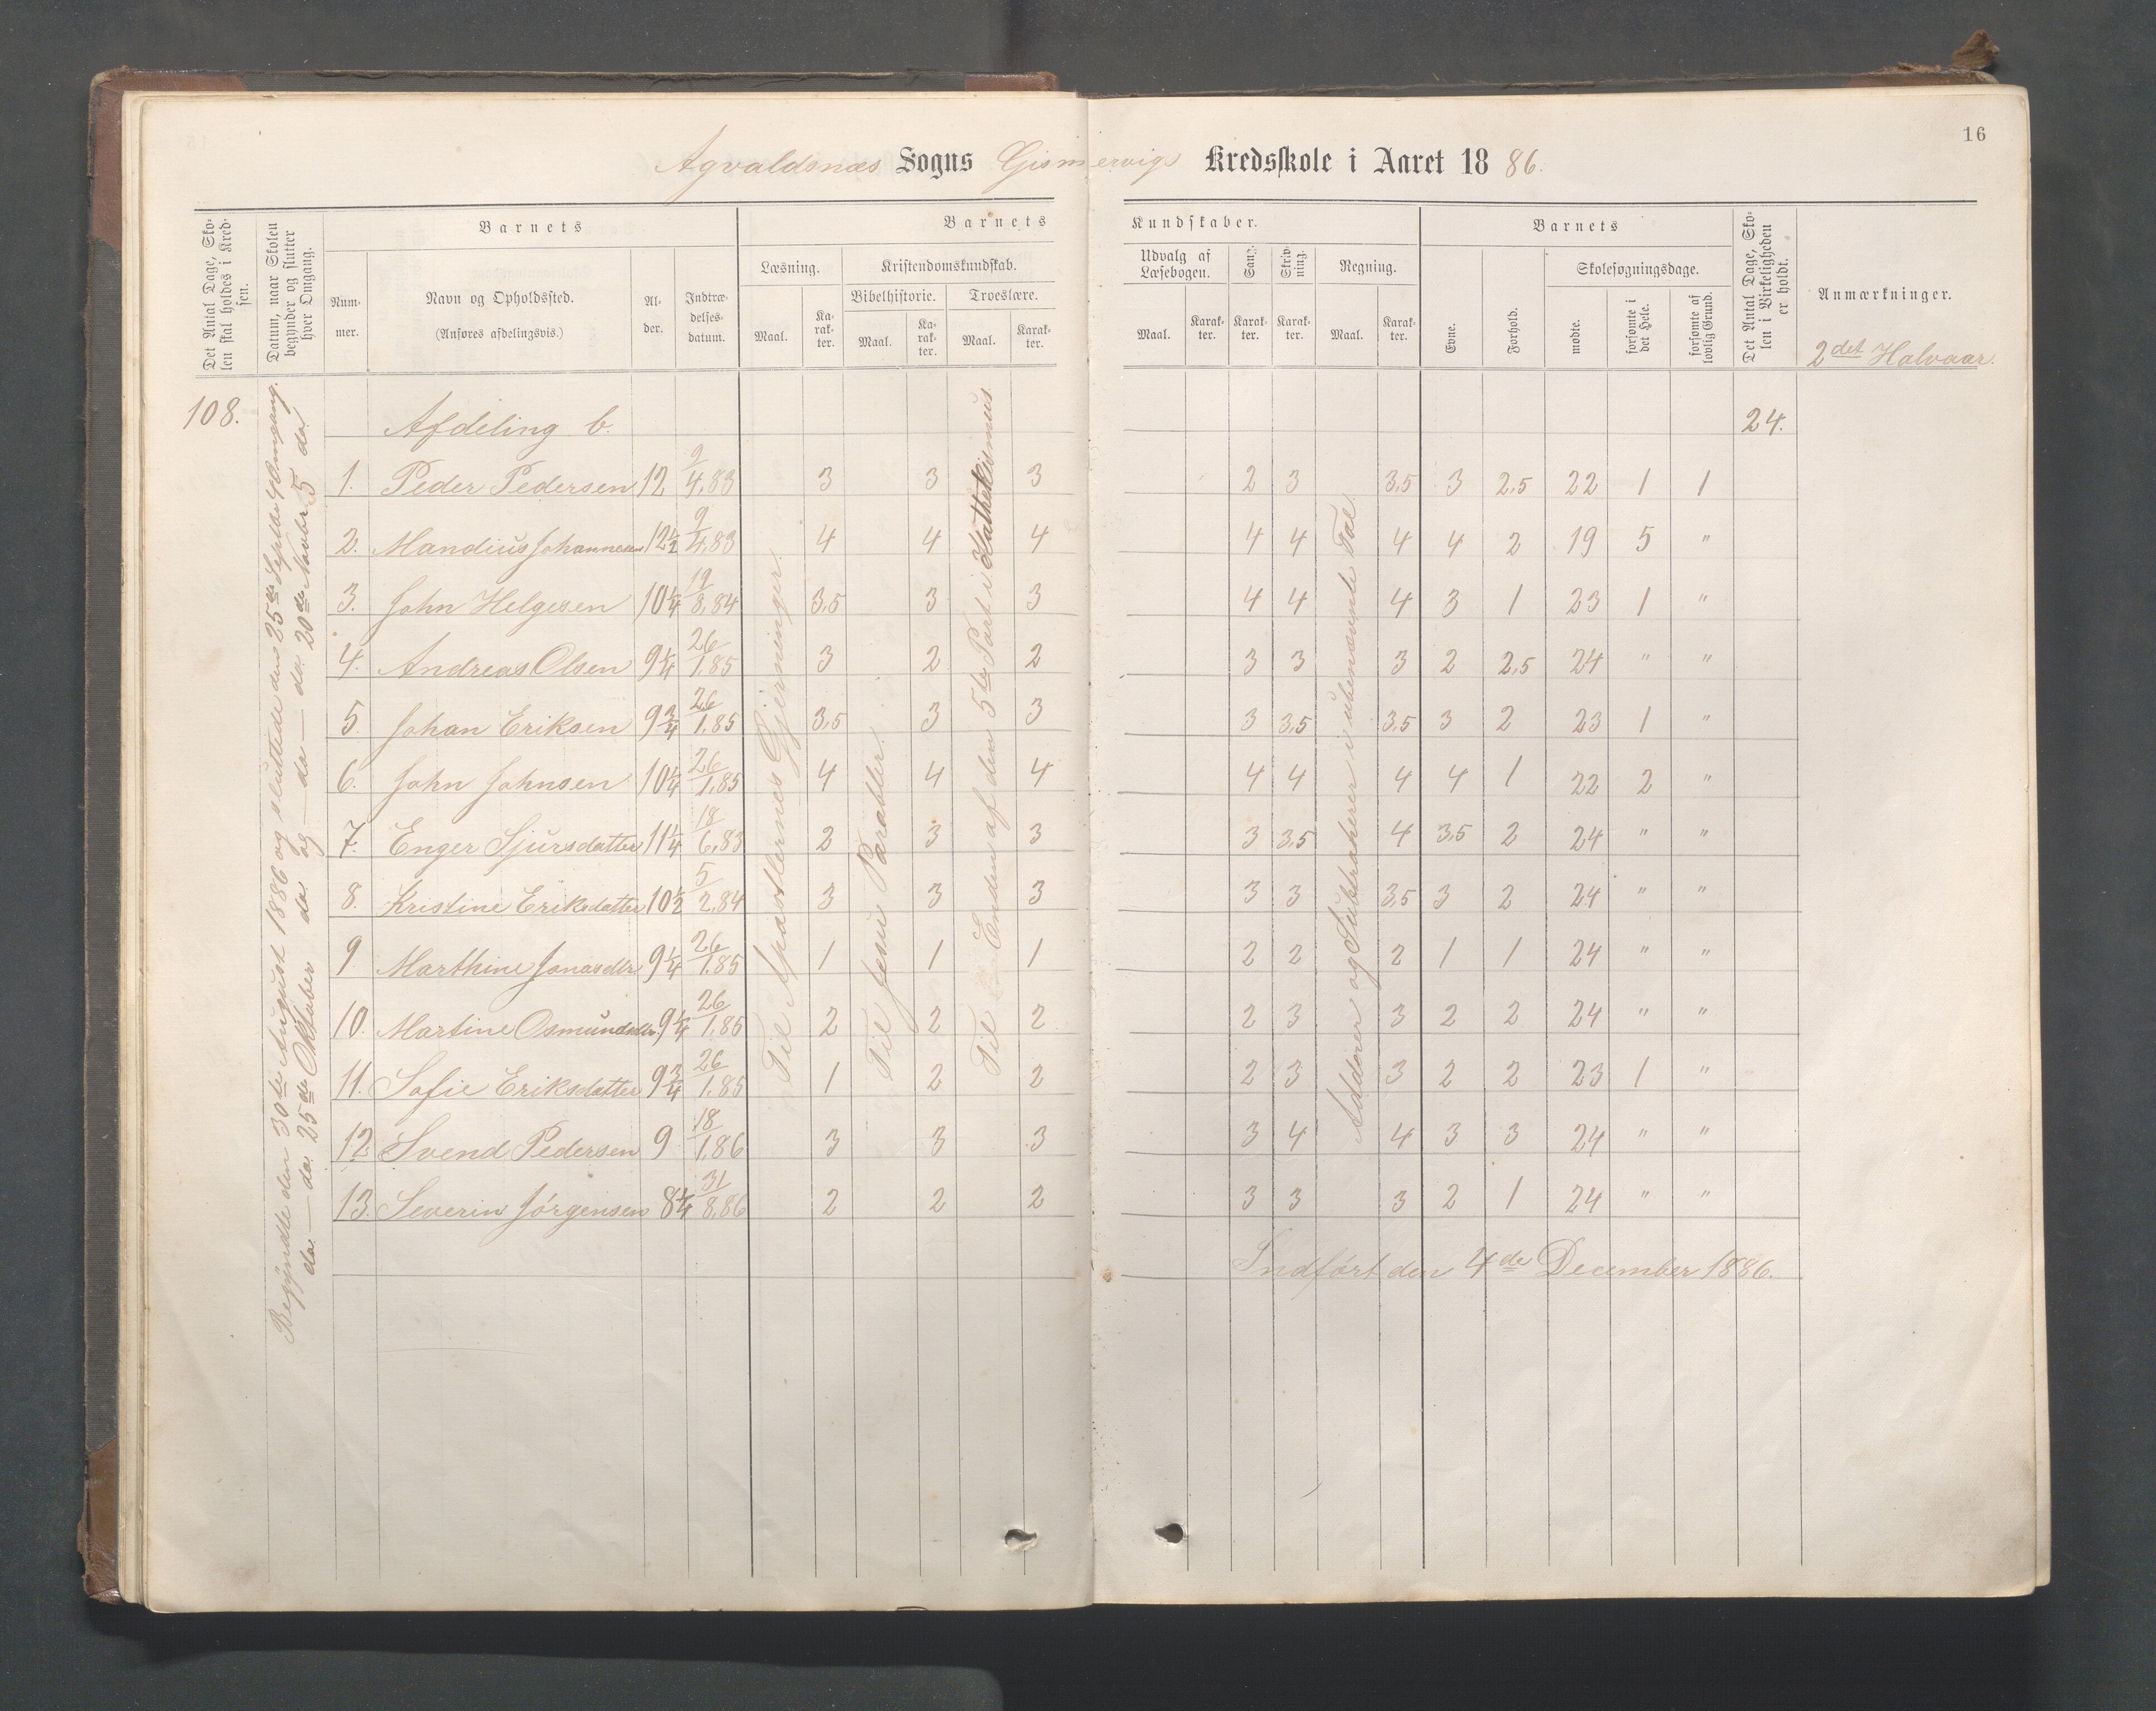 16
Agvaldsnæs Sogns Gismervigs Kredsskole i Aaret 1886.
Det Antal Dage, Sko-
len skal holdes i Kred-
sen.
Datum, naar Skolen
begynder og slutter
hver Omgang.
Barnets
Num-
mer.
Navn og Opholdssted.
(Anføres afdelingsvis.)
Al-
der.
Indtræ-
delses-
datum.
Barnets
Læsning.
Maal.
Ka-
rak-
ter.
Kristendomskundskab.
Bibelhistorie.
Maal.
Ka-
rak-
ter.
Troeslære.
Maal.
Karak-
ter.
Kundskaber.
Udvalg af
Læsebogen.
Maal.
Karak-
ter.
Sang.
Karak-
ter.
Skriv-
ning.
Karak-
ter.
Regning.
Maal.
Karak-
ter.
Barnets
Evne.
Forhold.
Skolesøgningsdage.
mødte.
forsømte i
det Hele.
forsømte af
lovlig Grund.
Det Antal Dage, Sko-
len i Virkeligheden
er holdt.
Anmærkninger.
2det Halvaar.
108.
Begyndte den 30te August 1886 og sluttede den 25de Septbr 4 Omgang.
do. — do. 25de Oktober do. og — do — do. 20de Novbr 5 do.
Afdeling b. 24.
1. Peder Pedersen 12 9/4.83 3 3 3 2 3 3,5 3 2,5 22 1 1
2. Mandius Johannesen 12 1/2 9/4.83 4 4 4 4 4 4 4 2 19 5 "
3. John Helgesen 10 1/4 19/8.84 3,5 3 3 4 4 4 3 1 23 1 "
4. Andreas Olsen 9 1/4 26/1.85 3 2 2 3 3 3 2 2,5 24 " "
5. Johan Eriksen 9 3/4 26/1.85 3,5 3 3 3 3,5 3,5 3 2 23 1 "
6. John Johnsen 10 1/4 26/1.85 4 4 4 4 4 4 4 1 22 2 "
7. Enger Sjursdatter 11 1/4 18/6.83 2 3 3 3 3,5 4 3,5 2 24 " "
8. Kristine Eriksdatter 10 1/2 5/2.84 3 3 3 3 3 3,5 3 2 24 " "
9. Marthine Jonasdtr 9 1/4 26/1.85 1 1 1 2 2 2 1 1 24 " "
10. Martine Osmundsdtr. 9 1/4 26/1.85 2 2 2 2 3 3 2 2 24 " "
11. Sofie Eriksdatter 9 3/4 26/1.85 1 2 2 2 3 3 2 2 23 1 "
12. Svend Pedersen 9 18/1.86 3 3 3 3 4 4 3 3 24 " "
13. Severin Jørgensen 8 1/4 31/8.86 2 2 2 3 3 3 2 1 24 " "
Til Apostlernes Gjerninger.
Til Jesu Parabler.
Til Enden af den 5te Part i Kathekismus
Adderer og Subtraherer i ubenævnte Tal
Indført den 4de December 1886.